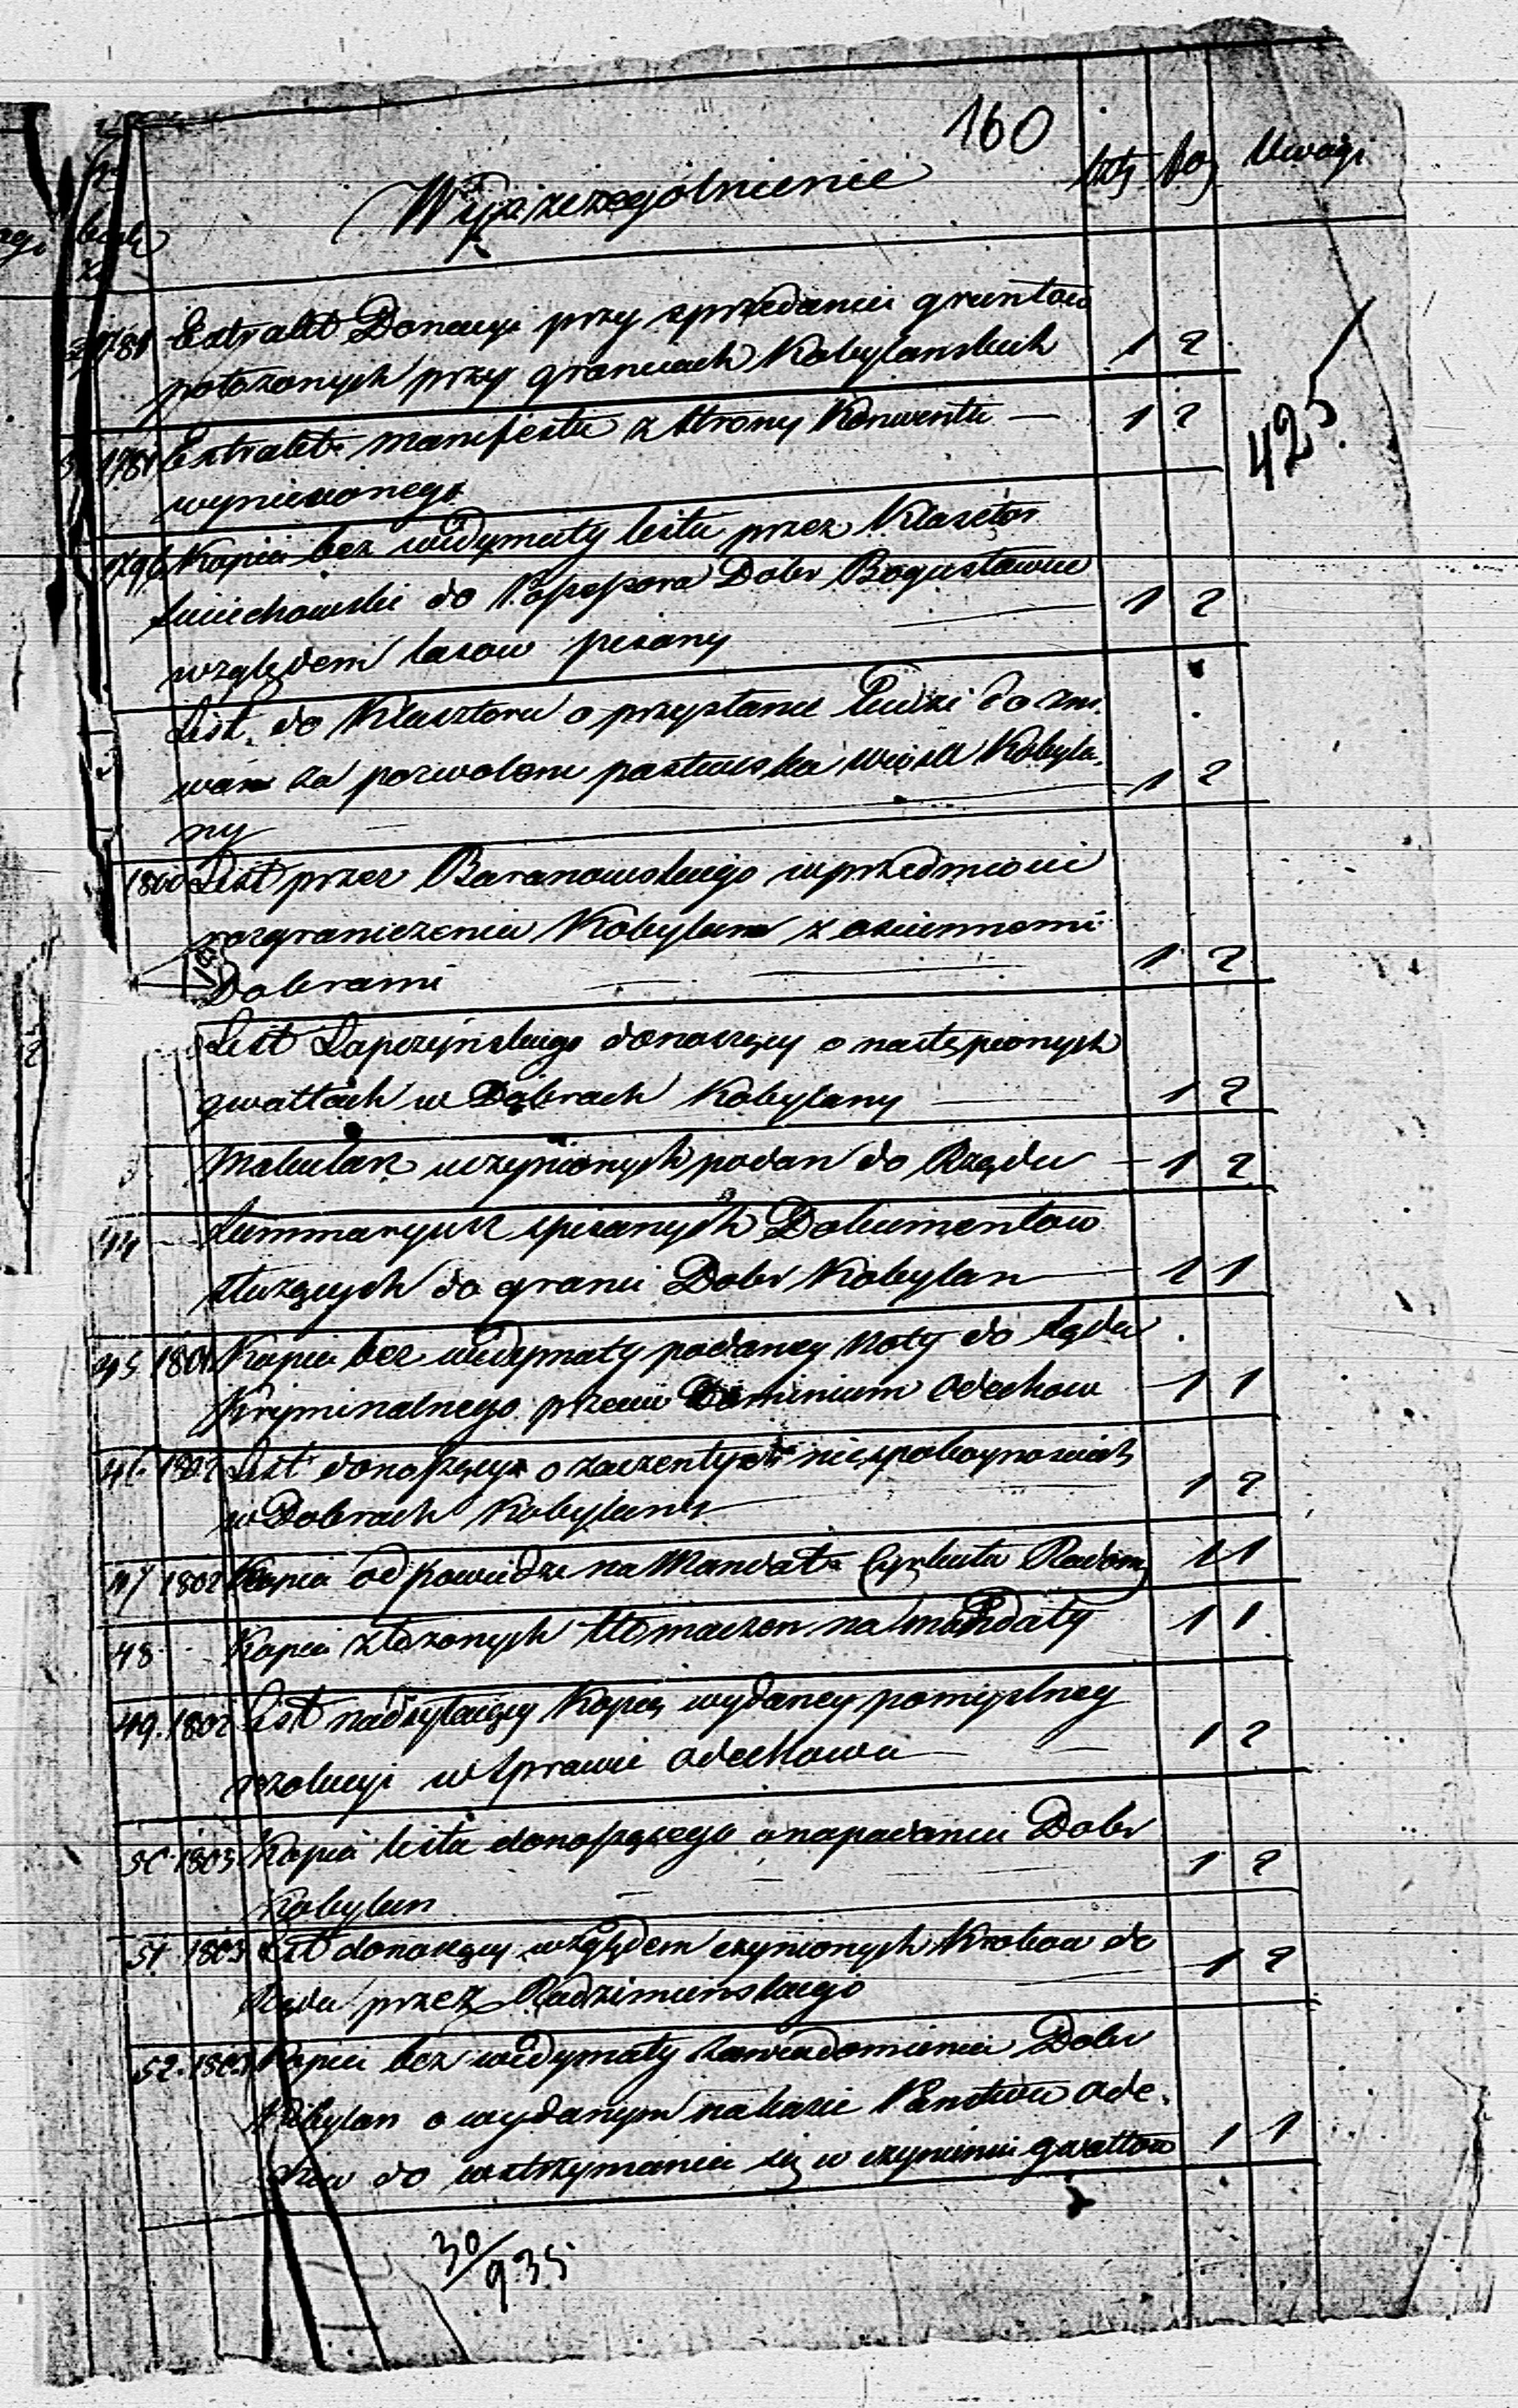 160
Wyszczegolnienie
Uwagi
1781 Extrakt Donacyi przy sprzedaniu gruntow
położonych przy granicach Kobylanskich 1 2
1781 Extrakt manifestu z strony Konwentu — 1 2
wyniesionego
425
Kopia bez widymaty listu przez Klasztor
Sieciechowski do Possessora Dobr Bogusławic 1 2
względem lasow pisany
List do Klasztoru o przysłanie Ludzi do zni-
wa za pozwolone pastwiska w Kobyla- 1 2
ny
1800 List przez Baranowskiego w przedmiocie
rozgraniczenia Kobylan z osciennemi
Dobrami 1 2
List Łapczynskiego donoszący o nastąpionych
gwałtach w Dobrach Kobylany 1 2
Makularz uczynionych podan do Rządu — 1 2
44 Summaryusz spisanych Dokumentow
służących do granic Dobr Kobylan 1 1
45 1801 Kopia bez widymaty podaney Noty do Sądu
Kryminalnego przeciw Dominium Odechow 1 1
46. 1802 List donoszący o zaczentych niespokoynosciach
w Dobrach Kobylany 1 2
47 1802 Kopia odpowiedzi na Mandata Cyrkułu Radom 1 1
48 Kopia złożonych tłomaczen na mandaty 1 1
49. 1802 List nadsyłaiący Kopią wydaney pomyslney
rezolucyi w Sprawie Odechowa 1 2
50. 1803 Kopia listu donoszącego o napadaniu Dobr
Kobylan 1 2
51. 1803 List donoszący względem czynionych Krokow do
Sądu przez Radziminskiego 1 2
52. 1803 Kopia bez widymaty zawiadomienia Dobr
Kobylan o wydanym nakazie Panstwu Ode-
chow do wstrzymania się w czynieniu gwałtow 1 1
30/935